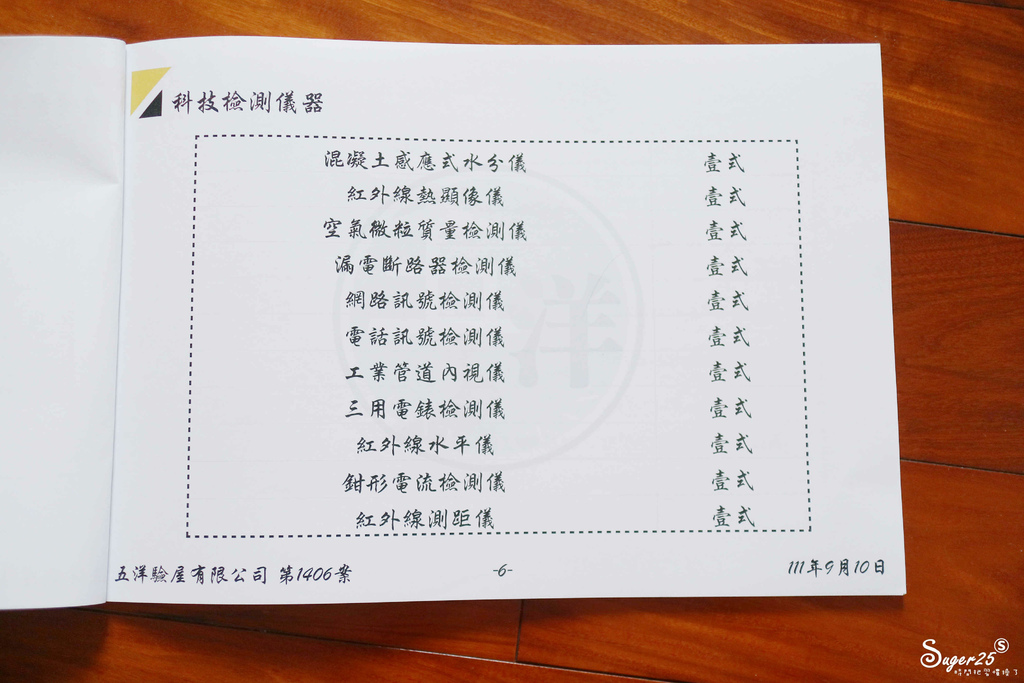 科技檢測儀器
混凝土感應式水分儀 壹式
紅外線熱顯像儀 壹式
空氣微粒質量檢測儀 壹式
漏電斷路器檢測儀 壹式
網路訊號檢測儀 壹式
電話訊號檢測儀 壹式
工業管道內視儀 壹式
三用電錶檢測儀 壹式
紅外線水平儀 壹式
鉗形電流檢測儀 壹式
紅外線測距儀 壹式
洋
五洋驗屋有限公司 第1406案 -6- 111年9月10日
S
Suger25
時間把習慣換了